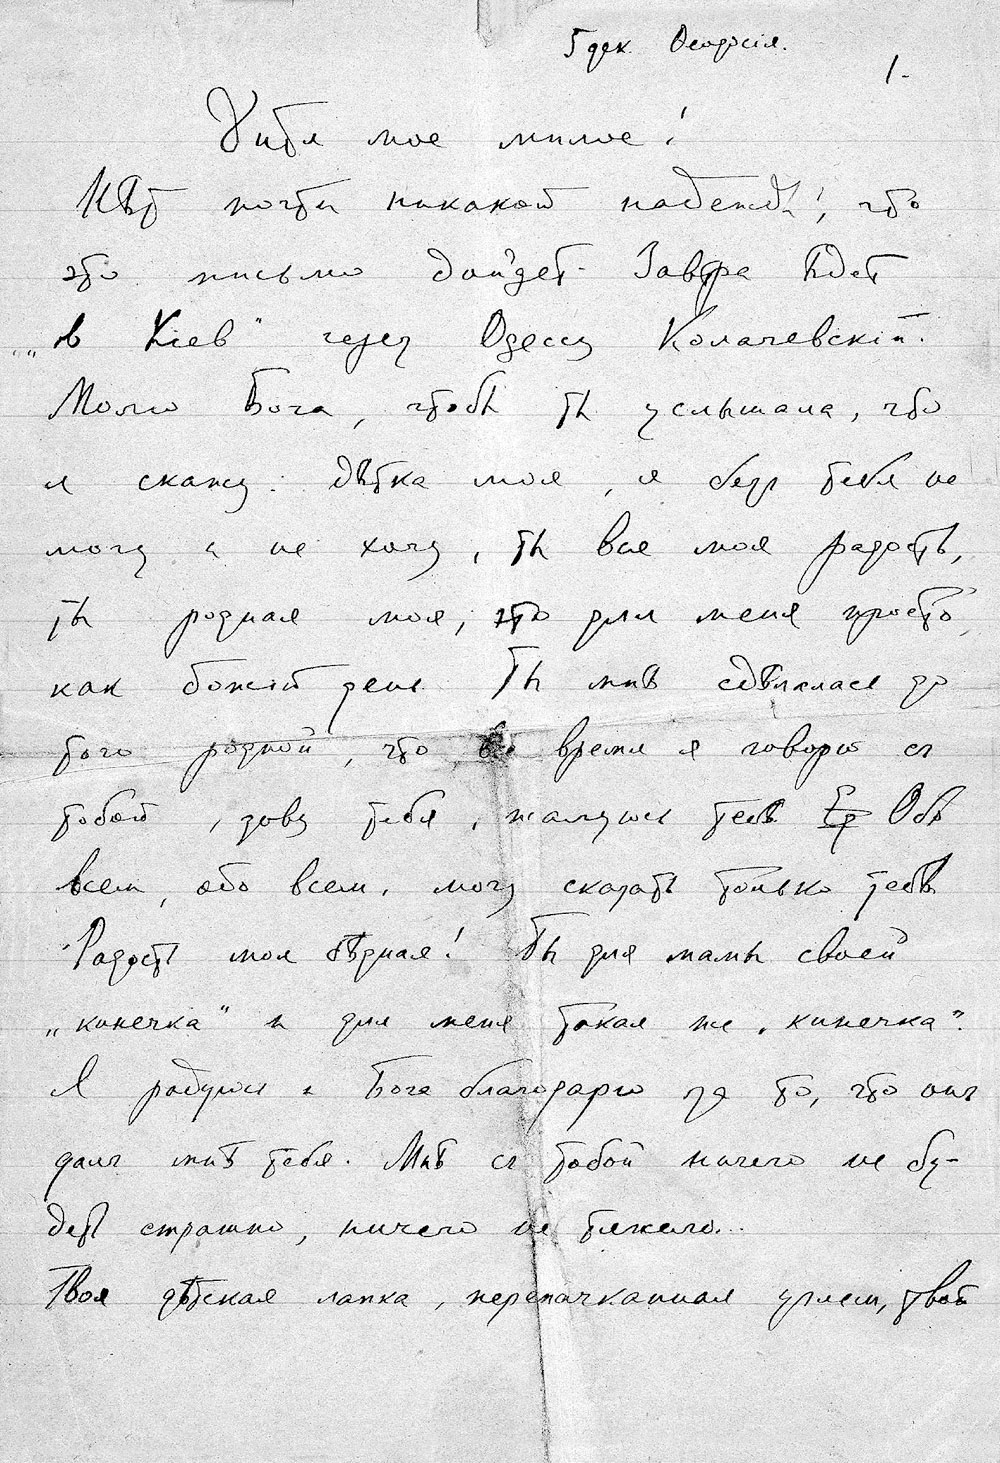 5 дек. Ѳеодосія.
1.
Дитя мое милое!
Нѣт почти никакой надежды, что
это письмо дойдет. Завтра ѣдет
„в Кіев" через Одессу Колачевскій.
Молю Бога, чтобы ты услышала, что
я скажу: дѣтка моя, я без тебя не
могу и не хочу, ты вся моя радость,
ты родная моя, это для меня просто,
как божій день. Ты мнѣ сдѣлалась до
того родной, что все время я говорю с
тобой, зову тебя, жалуюсь тебѣ. Обо
всем, обо всем, могу сказать только тебѣ.
Радость моя бѣдная! Ты для мамы своей
„кинечка" и для меня такая же „кинечка".
Я радуюсь и Бога благодарю за то, что он
дал мнѣ тебя. Мнѣ с тобой ничего не бу-
дет страшно, ничего не тяжело...
Твоя дѣтская лапка, перепачканная углем, твой